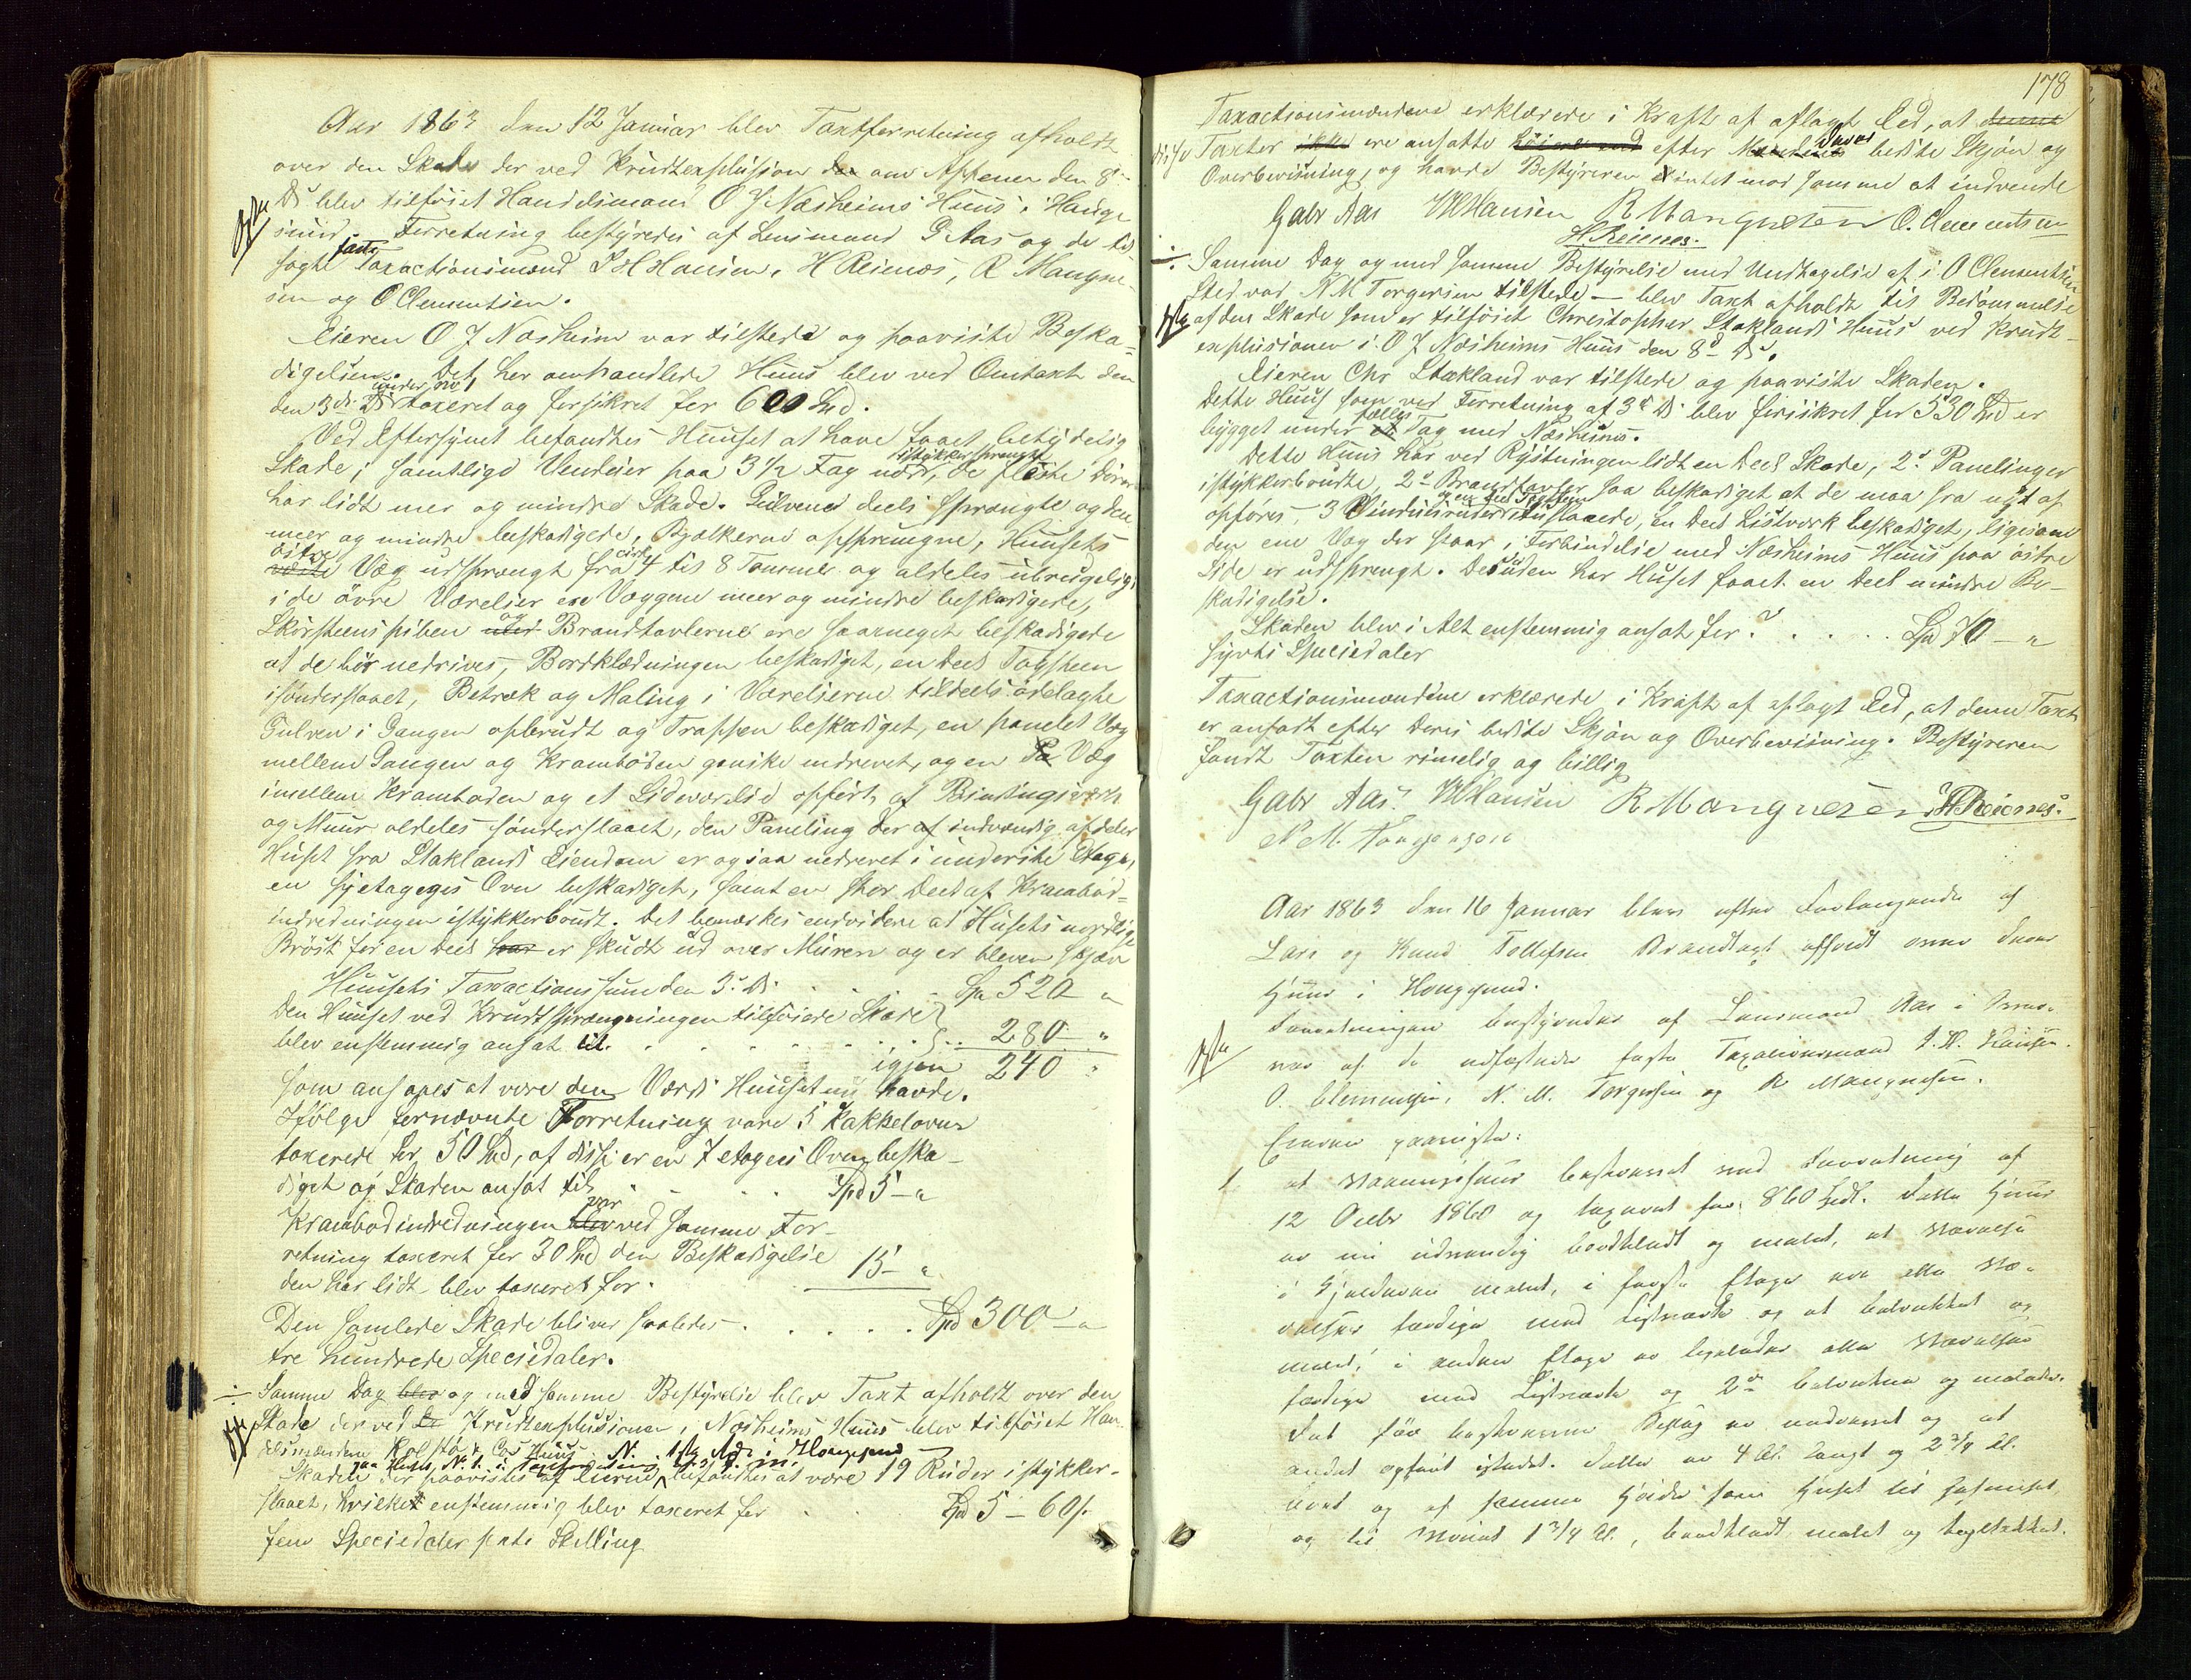 Aar 1863 den 12 Januar blev Taxtforretning afholdt
over den Skade der ved Krudtexplusion om Aftenen den 8de
Ds blev tilføiet Handelsmand O J Næsheims Huus i Hauge
sund. Forretning bestyredes af Lensmand G Aas og de til
sagte faste Taxactionsmænd S H Hansen, H Reienæs, R Mangne
sen og O Clementsen.
Eieren O J Næsheim var tilstede og paaviste Beska=
digelsen. Det her omhandlede Huus blev ved Omtaxt den
den 3de Ds under No 1 taxeret og forsikret for 600 Spd.
Ved Eftersynet befandtes Huuset at have faaet betydelig
Skade; samtlige Vinduer paa 3 1/2 Fag nær istykkersprængt, de fleste Dörer
har lidt mer og mindre Skade. Gulvene deels sprængte og den
meer og mindre beskadigede, Bjelkerne opsprungne, Huusets
östre Væg udsprængt fra circa 4 til 8 Tommer og aldeles ubrugelig,
i de övre Værelser ere Væggene meer og mindre beskadigede,
Skorsteenspiben og Brandtavlerne ere saameget beskadigede
at de bör nedrives, Bordklædningen beskadiget, en Deel Tagsteen
isønderslaaet, Betræk og Maling i Værelserne tildeels ödelagte
Gulven i Gangen opbrudt og Trappen beskadiget, en panelet Væg
mellem Gangen og Kramboden ganske nedrevet, og en Væg
imellem Kramboden og et Sideværelse opført af Bindingsværk
og Muur aldeles sönderslaaet, den Paneling der af indvendig afdeler
Huset fra Staklands Eiendom er ogsaa nedrevet i underste Etage,
en syvetages Ovn beskadiget, samt en stor Deel af Krambod=
indredningen istykkerbrudt. Det bemærkes endvidere at Husets nordlige
Bröst for en Deel er skudt ud over Muren og er bleven skjæv
Huusets Taxactionssum den 3de Ds . . . Spd 520 "
Den Huuset ved Krudtsprængningen tilføiede Skade
blev enstemmig ansat til . . . 280 "
som ansaaes at være den Værdi Huuset nu igjen havde. 240 "
Ifölge fornævnte Forretning vare 5 Kakkelovne
taxerede for 50 Spd, af disse er en 7 etages Ovn beska-
diget og Skaden ansat til . . . Spd 5 - "
Krambodindredningen var ved samme For-
retning taxeret for 30 Spd den Beskadigelse
den har lidt blev taxeret for. 15 - "
Den samlede Skade bliver saaledes . . . . . Spd 300 - "
tre hundrede Speciedaler.
Samme Dag og med samme Bestyrelse blev Taxt afholdt over den
Skade der ved Krudtexplusionen i Næsheims Huus blev tilføiet Han
delsmændene Kolstö & Co's Huus
Skaden der paavistes af Eierne befandtes at være 19 Ruder istykker-
slaaet, hvilket enstemmig blev taxeret for . . Spd 5 - 60 s.
fem Speciedaler sexti Skilling
178
Taxactionsmændene erklærede i Kraft af aflagt Eed, at
disse Taxter ere ansatte efter Deres bedste Skjön og
Overbeviisning, og havde Bestyreren intet mod samme at indvende
Gabr Aas SHHansen R Mangnesen O. Clementsen
H. Reienes.
Samme Dag og med samme Bestyrelse med Undtagelse af i O Clementsens
Sted var N M Torgersen tilstede - blev Taxt afholdt til Bedömmelse
af den Skade som er tilføiet Christopher Staklands Huus ved Krudt-
explusionen i O J Næsheims Huus den 8de Ds.
Eieren Chr Stakland var tilstede og paaviste Skaden.
Dette Huus som ved Forretning af 3de Ds blev forsikret for 530 Spd er
bygget under fælles Tag med Næsheims.
Dette Huus har ved Rystningen lidt en Deel Skade, 2de Panelinger
istykkerbrudte, 2de Brandtavler saa beskadiget at de maa fra nyt af
opføres, 3 Vinduesruder og en Deel Tagsteen ituslaaede, en Deel Listværk beskadiget, ligesom
den ene Væg der staar i Forbindelse med Næsheims Huus paa östre
Side er udsprengt. Desuden har Huset faaet en Deel mindre Be-
skadigelse.
Skaden blev i Alt enstemmig ansat for . . . . . Spd 70 - "
syvti Speciedaler
Taxactionsmændene erklærede i Kraft af aflagt Eed, at denne Taxt
er ansadt efter deres bedste Skjön og Overbeviisning. Bestyreren
fandt Taxten rimelig og billig
Gabr Aas. SHHansen R Mangnesen H Reienes.
N. M. Torgersen
Aar 1863 den 16 Januar blev efter Forlangende af
Lars og Knud Tollefsen Brandtaxt afholdt over deres
Huus i Haugesund.
Forretningen bestyredes af Lensmand Aas i Over-
vær af de edfæstede faste Taxationsmænd S. H. Hansen.
O. Clementsen, N. M. Torgersen og R Mangnesen.
Eierne paaviste:
1. et Vaaningshuus beskrevet ved Forretning af
12 Octbr 1860 og taxeret for 860 Spdl. Dette Huus
er nu udvendig bordklædt og malet, et Værelse
i Kjelderen malet, i første Etage ere alle Væ-
relser færdige med Listværk og et betrukket og
malet; i anden Etage er ligeledes alle Værelser
færdige med Listværk og 2de betrukne og malede.
Det før beskrevne Bislag er nedrevet og et
andet opført istedet. Dette er 4 Al. langt og 2 3/4 Al.
bredt og af samme Höide som Huset til Gesimset,
og til Mönet 1 3/4 Al., bordklædt malet og tagtækket.